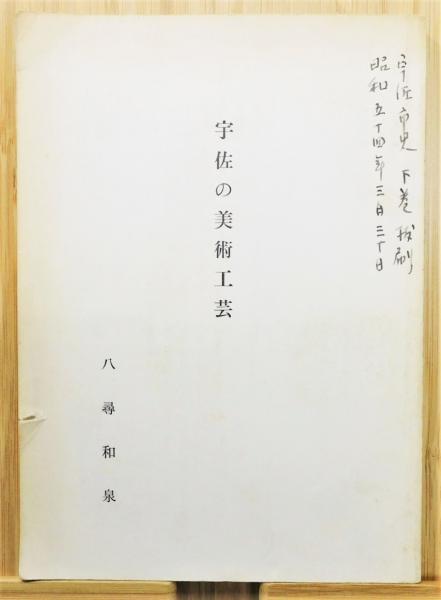 宇佐市史 下巻 抜刷
昭和五十四年三月三十日
宇佐の美術工芸
八尋和泉